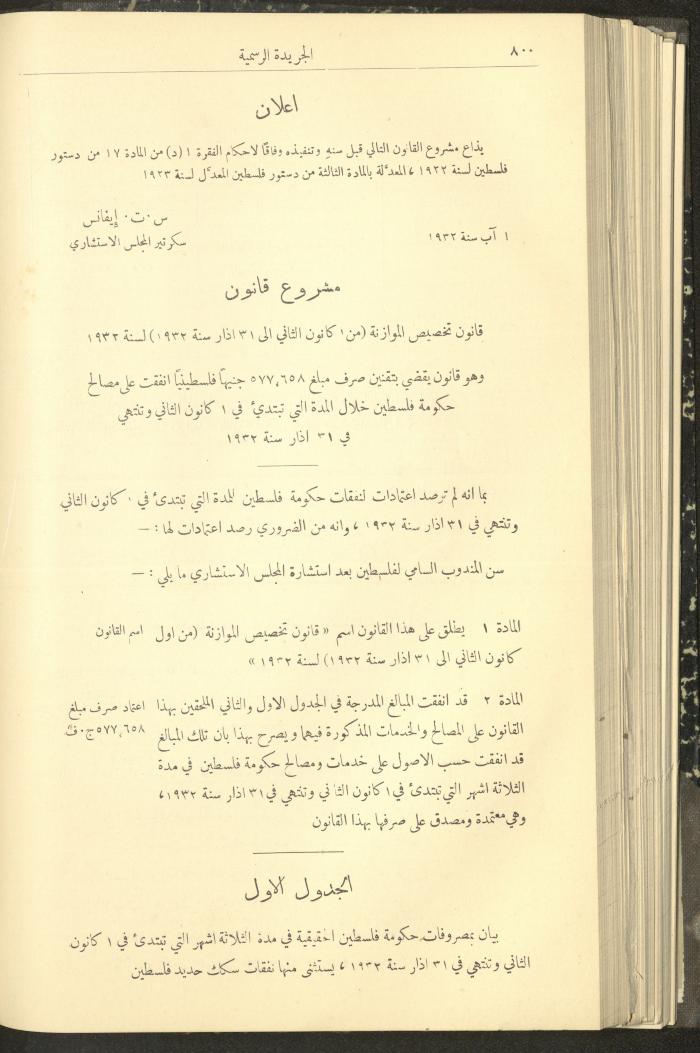 ٨٠٠
الجريدة الرسمية
اعلان
يذاع مشروع القانون التالي قبل سنه وتنفيذه وفاقًا لاحكام الفقرة ١ (د) من المادة ١٧ من دستور
فلسطين لسنة ١٩٢٢ ، المعدلة بالمادة الثالثة من دستور فلسطين المعدَّل لسنة ١٩٢٣
س ٠ ت ٠ إيفانس
١ آب سنة ١٩٣٢
سكرتير المجلس الاستشاري
مشروع قانون
قانون تخصيص الموازنة (من ١ كانون الثاني الى ٣١ اذار سنة ١٩٣٢) لسنة ١٩٣٢
وهو قانون يقضي بتقنين صرف مبلغ ٥٧٧،٦٥٨ جنيهًا فلسطينيًا انفقت على مصالح
حكومة فلسطين خلال المدة التي تبتدئ في ١ كانون الثاني وتنتهي
في ٣١ اذار سنة ١٩٣٢
بما انه لم ترصد اعتمادات لنفقات حكومة فلسطين للمدة التي تبتدئ في ١ كانون الثاني
وتنتهي في ٣١ اذار سنة ١٩٣٢ ، وانه من الضروري رصد اعتمادات لها : —
سن المندوب السامي لفلسطين بعد استشارة المجلس الاستشاري ما يلي : —
المادة ١ يطلق على هذا القانون اسم « قانون تخصيص الموازنة (من اول
اسم القانون
كانون الثاني الى ٣١ اذار سنة ١٩٣٢) لسنة ١٩٣٢ »
المادة ٢ قد انفقت المبالغ المدرجة في الجدول الاول والثاني الملحقين بهذا
اعتماد صرف مبلغ
القانون على المصالح والخدمات المذكورة فيهما ويصرح بهذا بان تلك المبالغ
٥٧٧،٦٥٨ ج٠ف
قد انفقت حسب الاصول على خدمات ومصالح حكومة فلسطين في مدة
الثلاثة اشهر التي تبتدئ في ١ كانون الثاني وتنتهي في ٣١ اذار سنة ١٩٣٢ ،
وهي معتمدة ومصدق على صرفها بهذا القانون
الجدول الاول
بيان بمصروفات حكومة فلسطين الحقيقية في مدة الثلاثة اشهر التي تبتدئ في ١ كانون
الثاني وتنتهي في ٣١ اذار سنة ١٩٣٢ ، يستثنى منها نفقات سكك حديد فلسطين